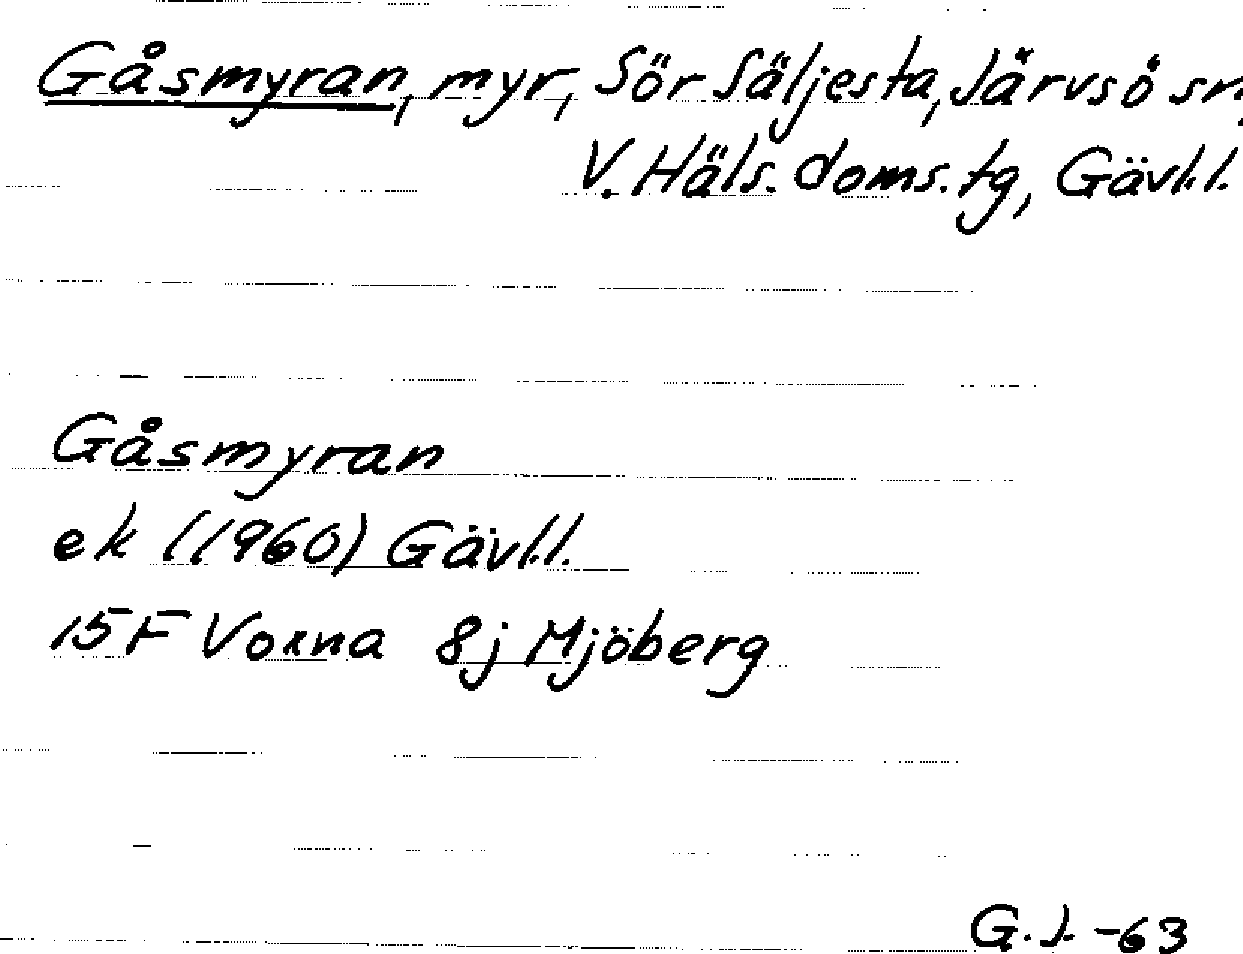 Gåsmyran, myr, Sör Säljesta, Järvsö sn,
V. Häls. doms. tg, Gävl.l.
Gåsmyran
ek (1960) Gävl.l.
15F Voxna 8j Mjöberg
G.J. -63